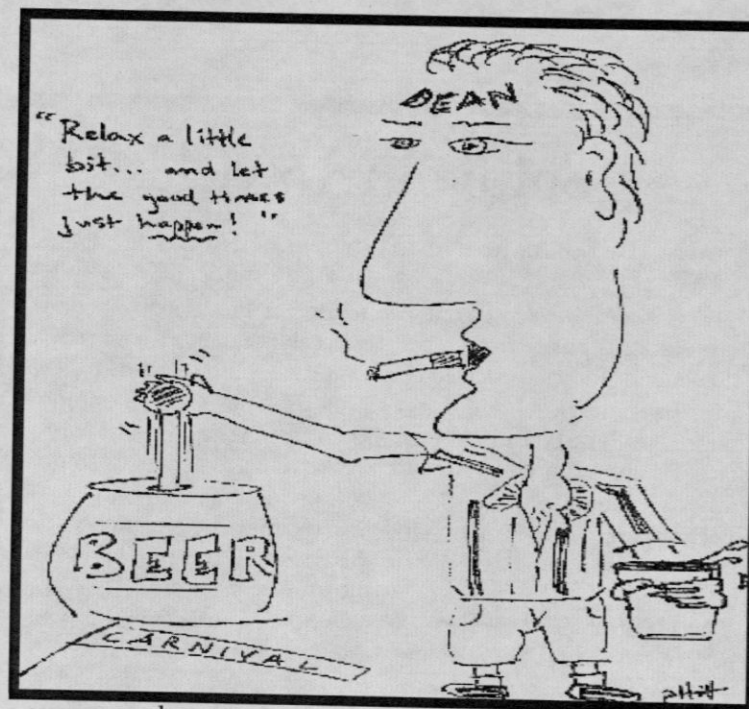 "Relax a little
bit... and let
the good times
just happen!"
DEAN
BEER
CARNIVAL